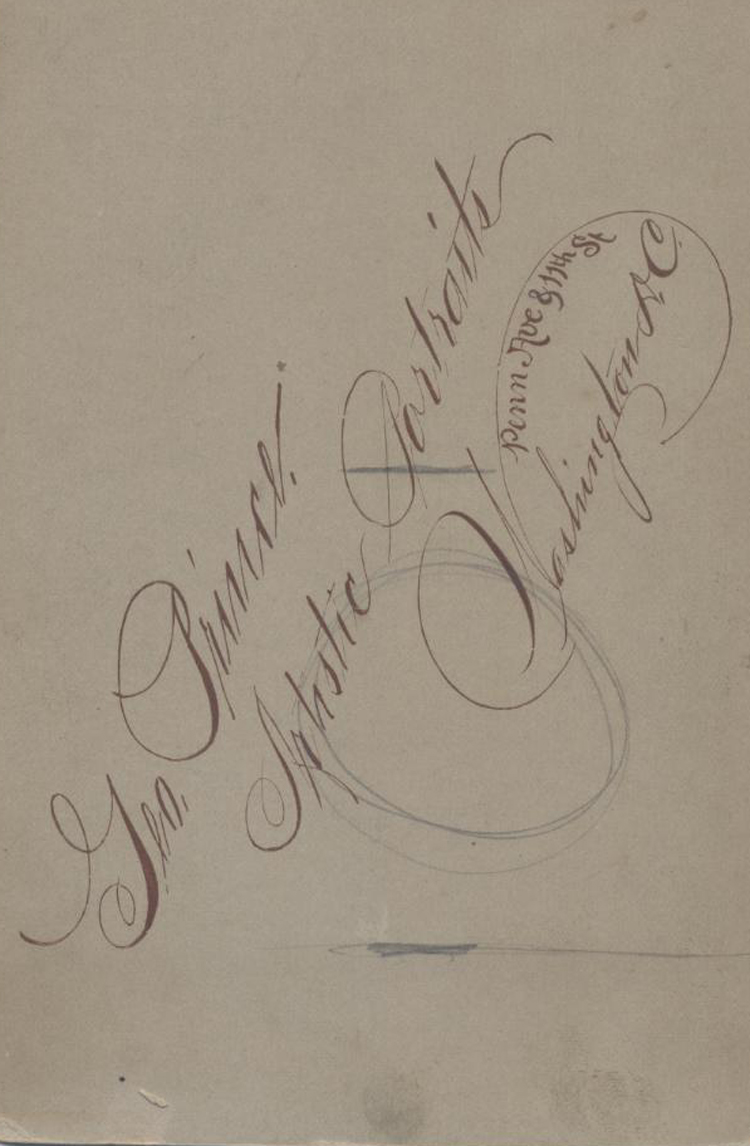 Geo. Prince.
Artistic Portraits
Penn Ave & 11th St
Washington D.C.